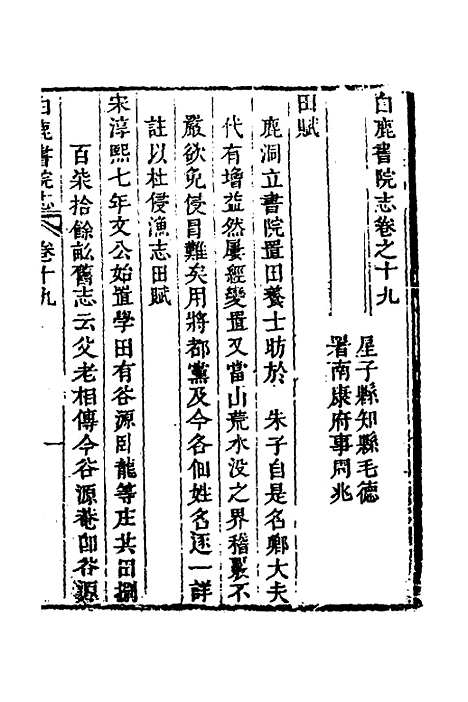 白鹿書院志卷之十九
星子縣知縣毛德
署南康府事周兆
田賦
鹿洞立書院置田養士昉於　朱子自是名卿大夫
代有增益然屢經變置又當山荒水没之界稽覈不
嚴欲免侵冒難矣用將都黨及今各佃姓名逐一詳
註以杜侵漁志田賦
宋淳熙七年文公始置學田有谷源卧龍等庄共田捌
百柒拾餘畝舊志云父老相傳今谷源菴即谷源
白鹿書院志　卷十九　一